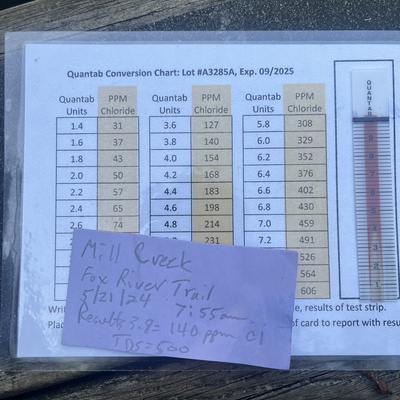 Quantab Conversion Chart: Lot #A3285A, Exp. 09/2025
Quantab Units PPM Chloride Quantab Units PPM Chloride Quantab Units PPM Chloride
1.4 31 3.6 127 5.8 308
1.6 37 3.8 140 6.0 329
1.8 43 4.0 154 6.2 352
2.0 50 4.2 168 6.4 376
2.2 57 4.4 183 6.6 402
2.4 65 4.6 198 6.8 430
2.6 74 4.8 214 7.0 459
231 7.2 491
526
564
606
QUANTAB
Mill Creek
Fox River Trail
5/21/24 7:55am
Results 3.8= 140 ppm Cl
TDS=500
e, results of test strip.
of card to report with resu